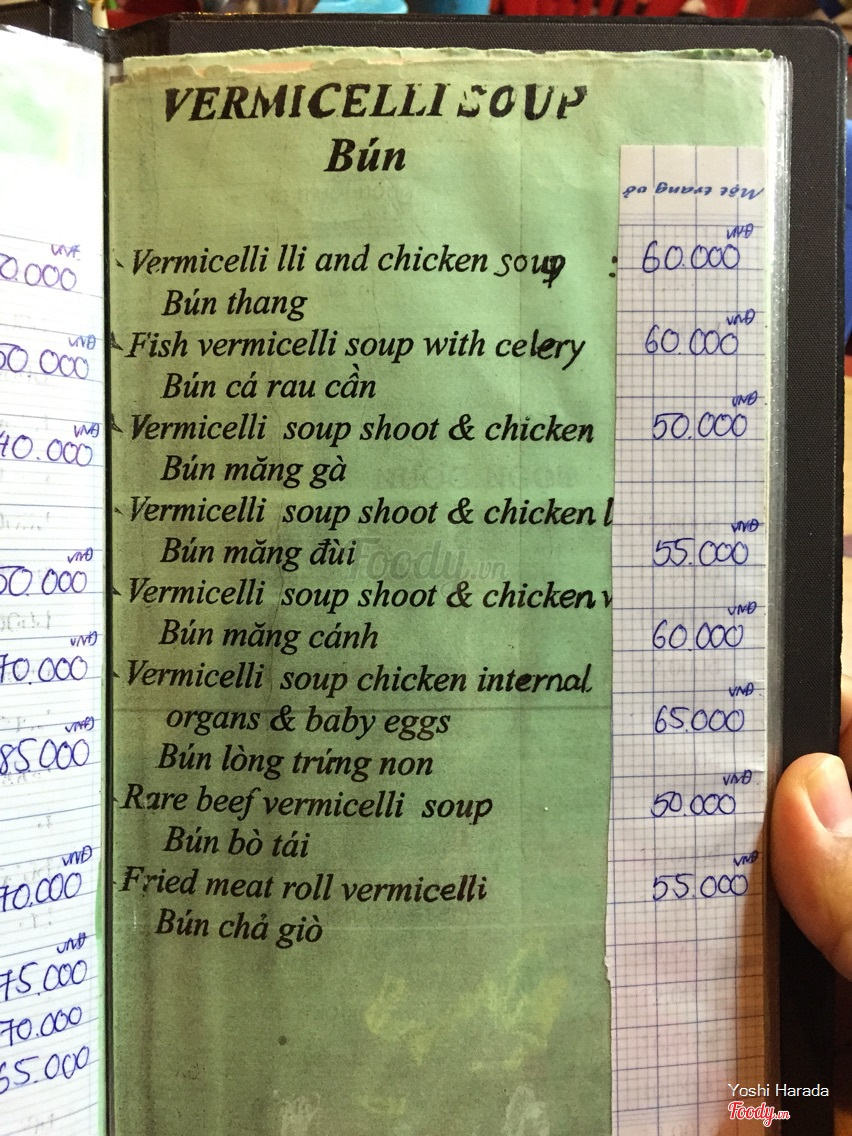 VERMICELLI SOUP
Bún
VNĐ
Vermicelli lli and chicken soup : 60.000
Bún thang
VNĐ
Fish vermicelli soup with celery 60.000
Bún cá rau cần
VNĐ
Vermicelli soup shoot & chicken 50.000
Bún măng gà
Vermicelli soup shoot & chicken l
VNĐ
Bún măng đùi 55.000
Vermicelli soup shoot & chicken
VNĐ
Bún măng cánh 60.000
Vermicelli soup chicken internal
VNĐ
organs & baby eggs 65.000
Bún lòng trứng non
VNĐ
Rare beef vermicelli soup 50.000
Bún bò tái
VNĐ
Fried meat roll vermicelli 55.000
Bún chả giò
VNĐ
0.000
VNĐ
50.000
VNĐ
40.000
VNĐ
50.000
VNĐ
70.000
VNĐ
85.000
VNĐ
70.000
VNĐ
75.000
70.000
65.000
Foody.vn
Yoshi Harada
Foody.vn